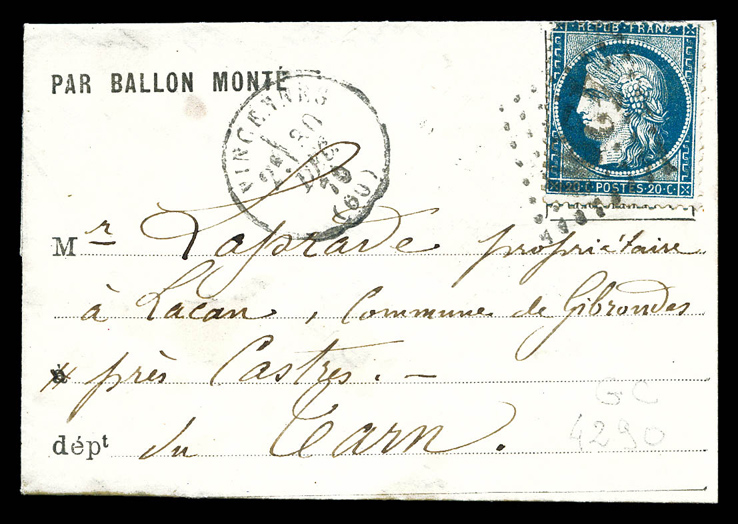 REPUB·FRANC·
20·C·POSTES·20·C·
PAR BALLON MONTÉ
VINCENNES
30
DEC.
70
(60)
Mr Laprade propriétaire
à Lacan, Commune de Gibrondes
près Castres. —
dépt du Tarn.
GC
4290